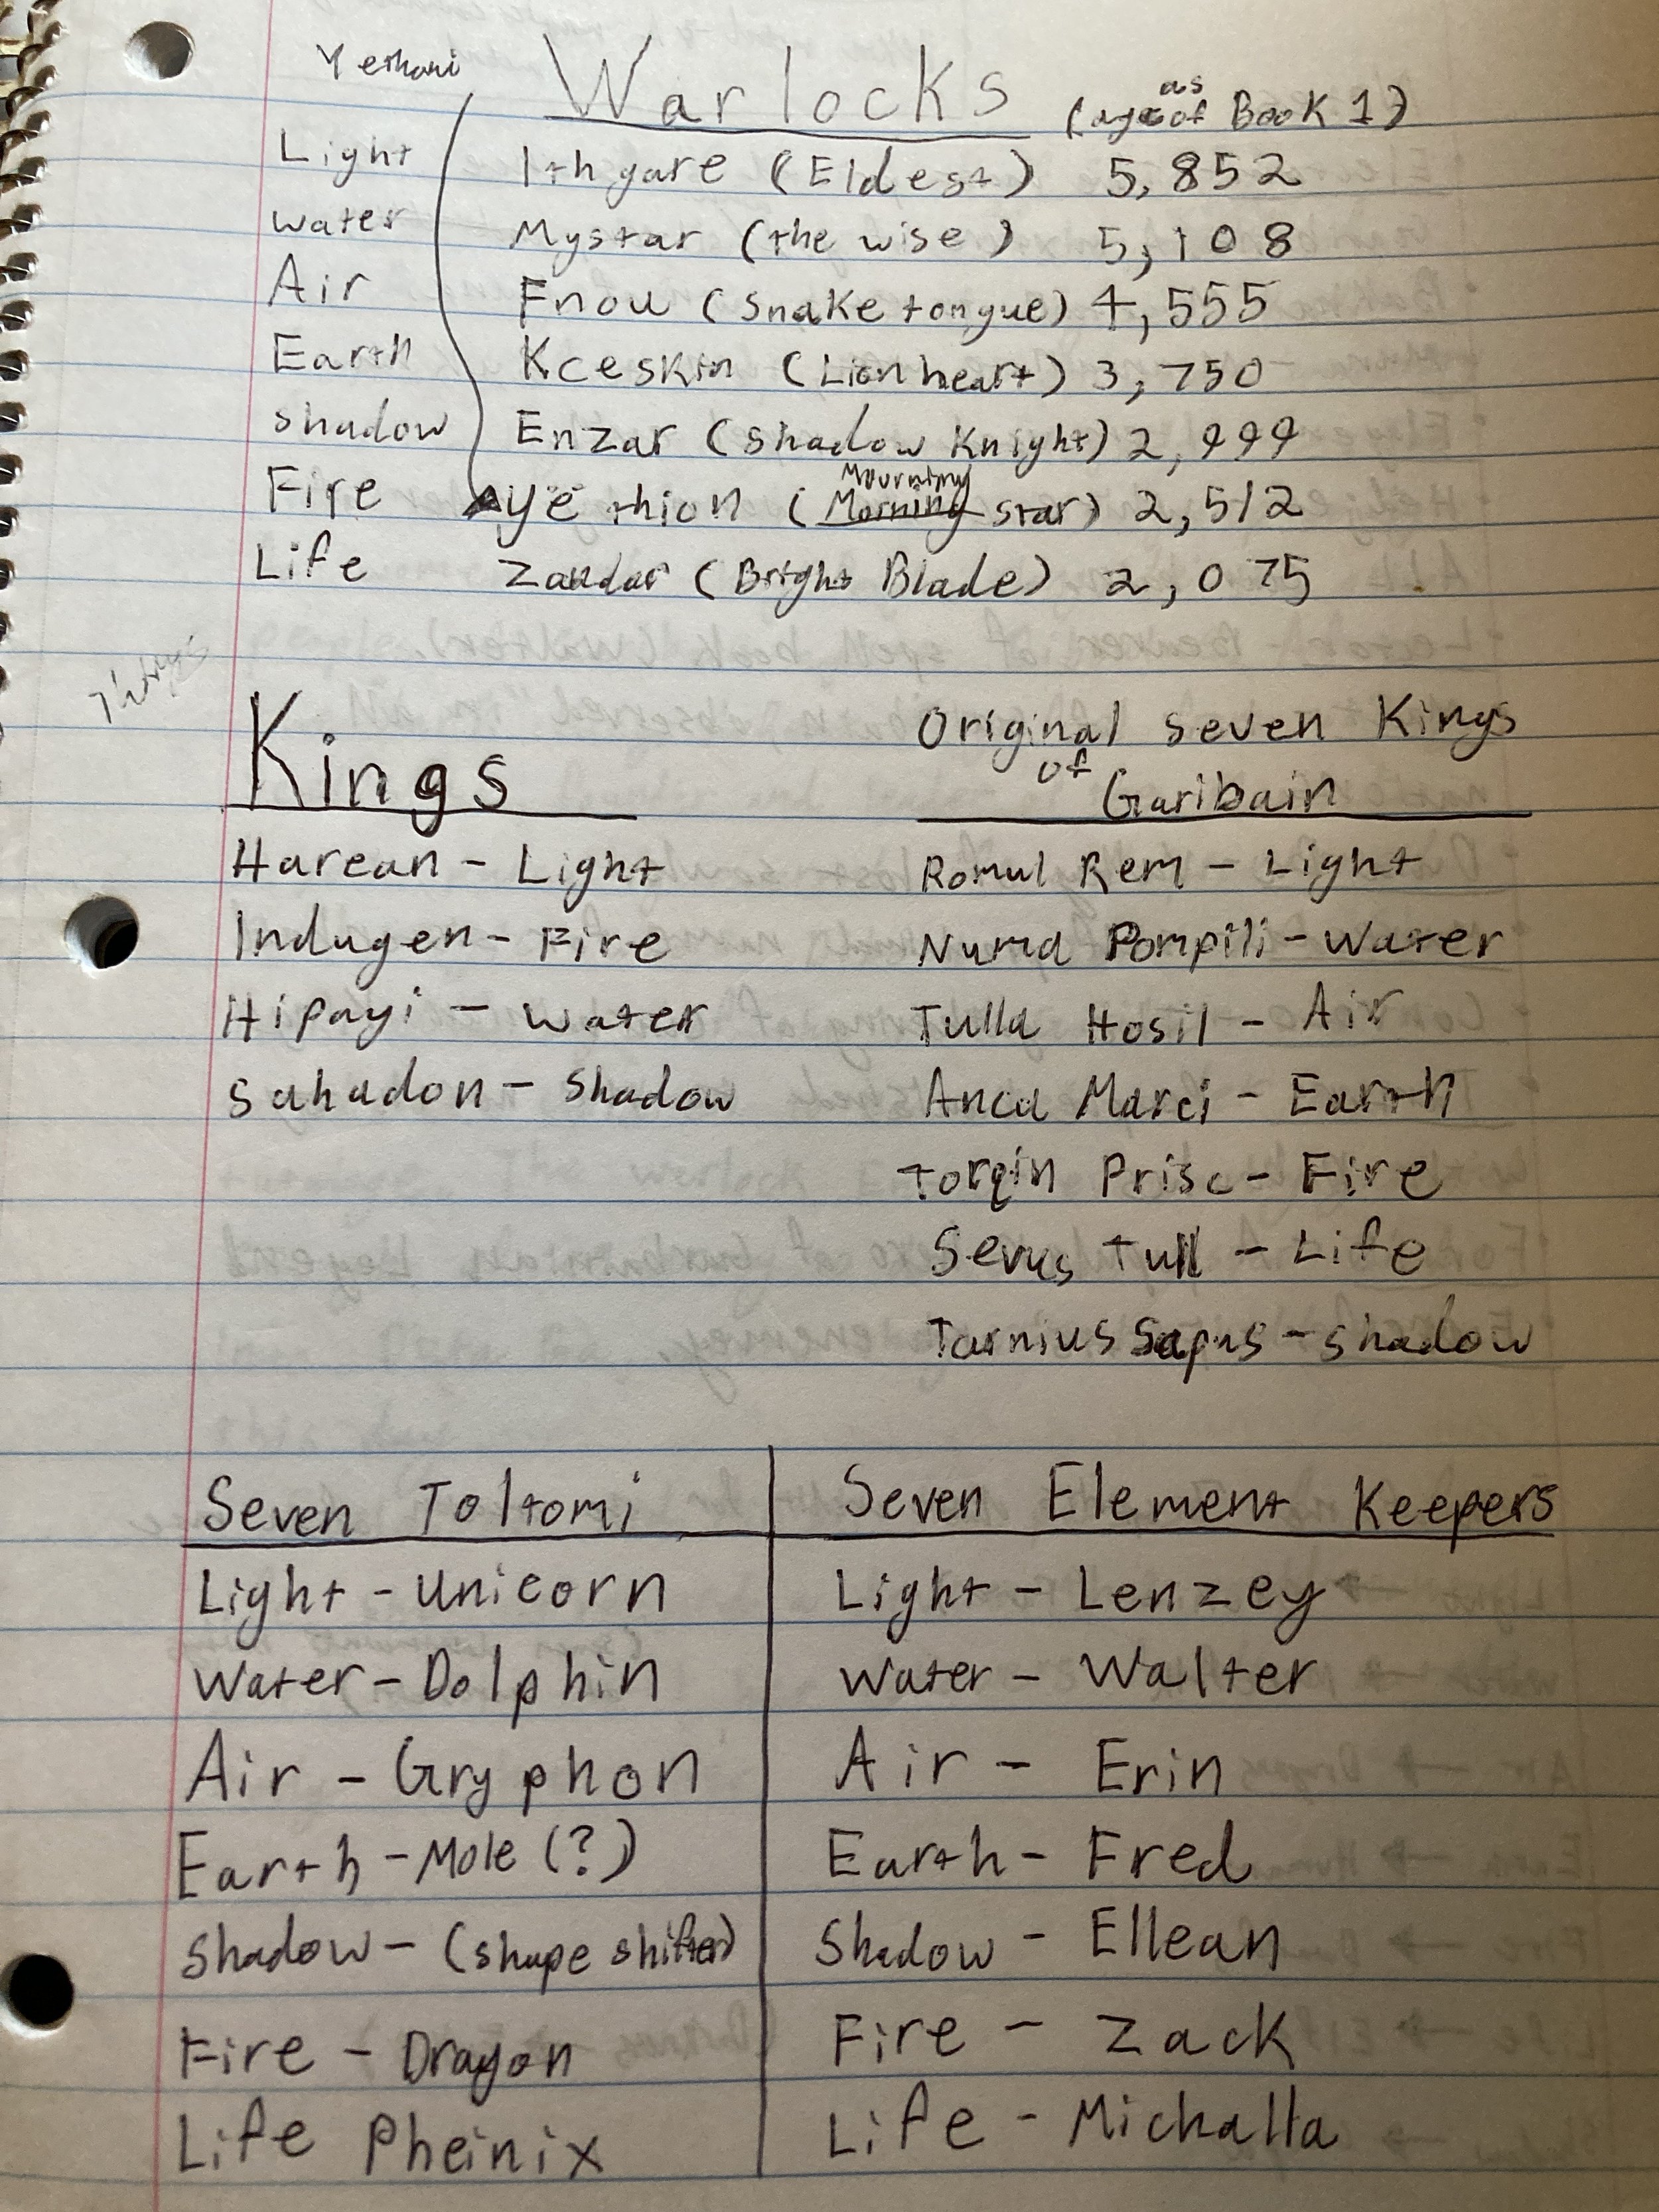 Warlocks (age as of Book 1)
Light Ithgare (Eldest) 5,852
Water Mystar (the wise) 5,108
Air Fnou (Snake tongue) 4,555
Earth Kceskin (Lionheart) 3,750
Shadow Enzar (Shadow Knight) 2,999
Mourning
Fire Ayë thion (Morning star) 2,512
Life Zandar (Bright Blade) 2,075
Kings
Harean - Light
Indugen - Fire
Hipayi - Water
Sahadon - Shadow
Original Seven Kings
of Garibain
Romul Rem - Light
Numa Pompili - Water
Tulla Hosil - Air
Anca Marci - Earth
Torqin Prisc - Fire
Sevus Tull - Life
Tarnius Sapus - Shadow
Seven Toltomi
Light - Unicorn
Water - Dolphin
Air - Gryphon
Earth - Mole (?)
Shadow - (shape shifter)
Fire - Dragon
Life Pheinix
Seven Element Keepers
Light - Lenzey
Water - Walter
Air - Erin
Earth - Fred
Shadow - Ellean
Fire - Zack
Life - Michalla